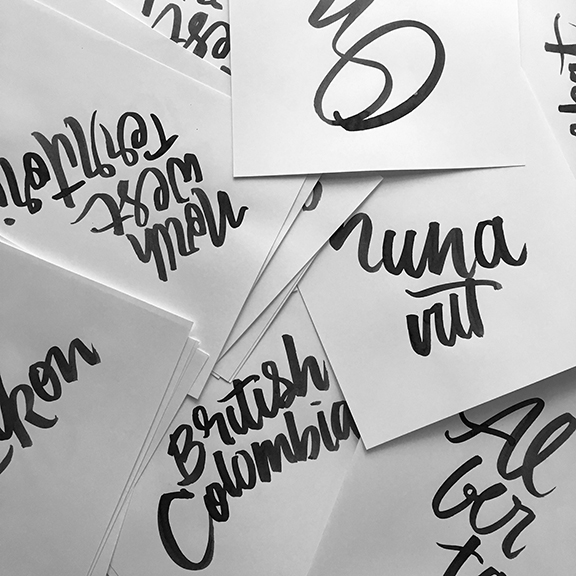 North
west
Territori
nuna
vut
kon
British
Colombia
Al
ber
ta